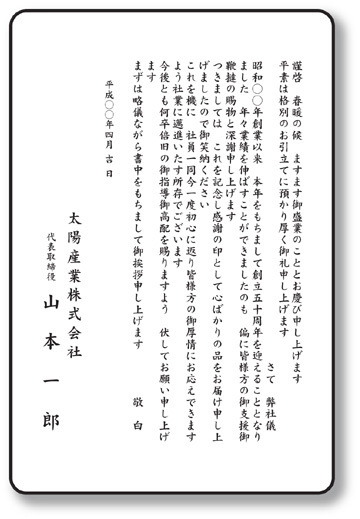 謹啓　春暖の候　ますます御盛業のこととお慶び申し上げます
平素は格別のお引立てに預かり厚く御礼申し上げます
さて　弊社儀
昭和〇〇年創業以来　本年をもちまして創立五十周年を迎えることとなり
ました　年々業績を伸ばすことができましたのも　偏に皆様方の御支援御
鞭撻の賜物と深謝申し上げます
つきましては　これを記念し感謝の印として心ばかりの品をお届け申し上
げましたので御笑納ください
これを機に　社員一同今一度初心に返り皆様方の御厚情にお応えできます
よう社業に邁進いたす所存でございます
今後とも何卒倍旧の御指導御高配を賜りますよう　伏してお願い申し上げ
ます
まずは略儀ながら書中をもちまして御挨拶申し上げます
敬白
平成〇〇年四月吉日
太陽産業株式会社
代表取締役　山本一郎